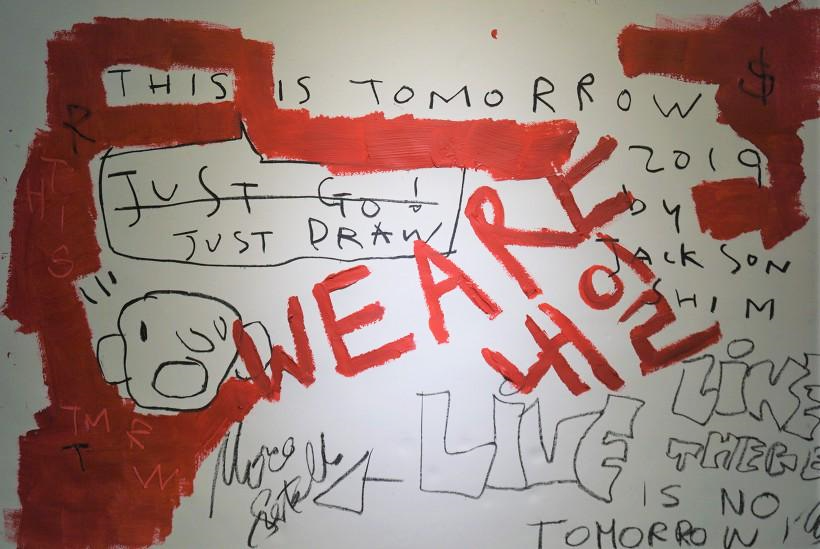 THIS IS TOMORROW $
R
2019
THIS
JUST GO!
JUST DRAW
by
JACKSON
SHIM
WE ARE
HON
LiKE
TMRW
T
LiVE
THERE
IS NO
TOMORROW